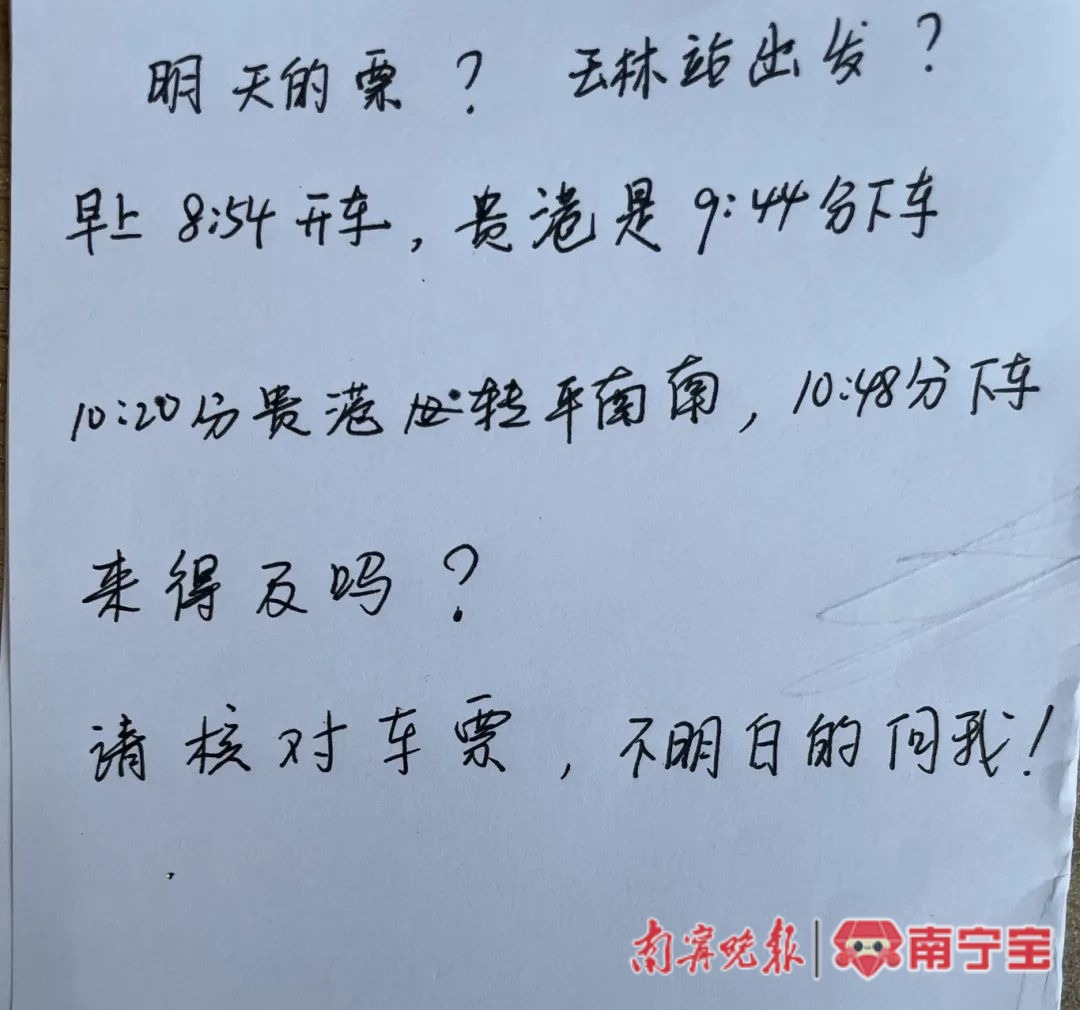 明天的票？ 玉林站出发？
早上 8:54 开车，贵港是 9:44分下车
10:20分贵港转平南南，10:48分下车
来得及吗？
请核对车票，不明白的问我！
南宁晚报 南宁宝